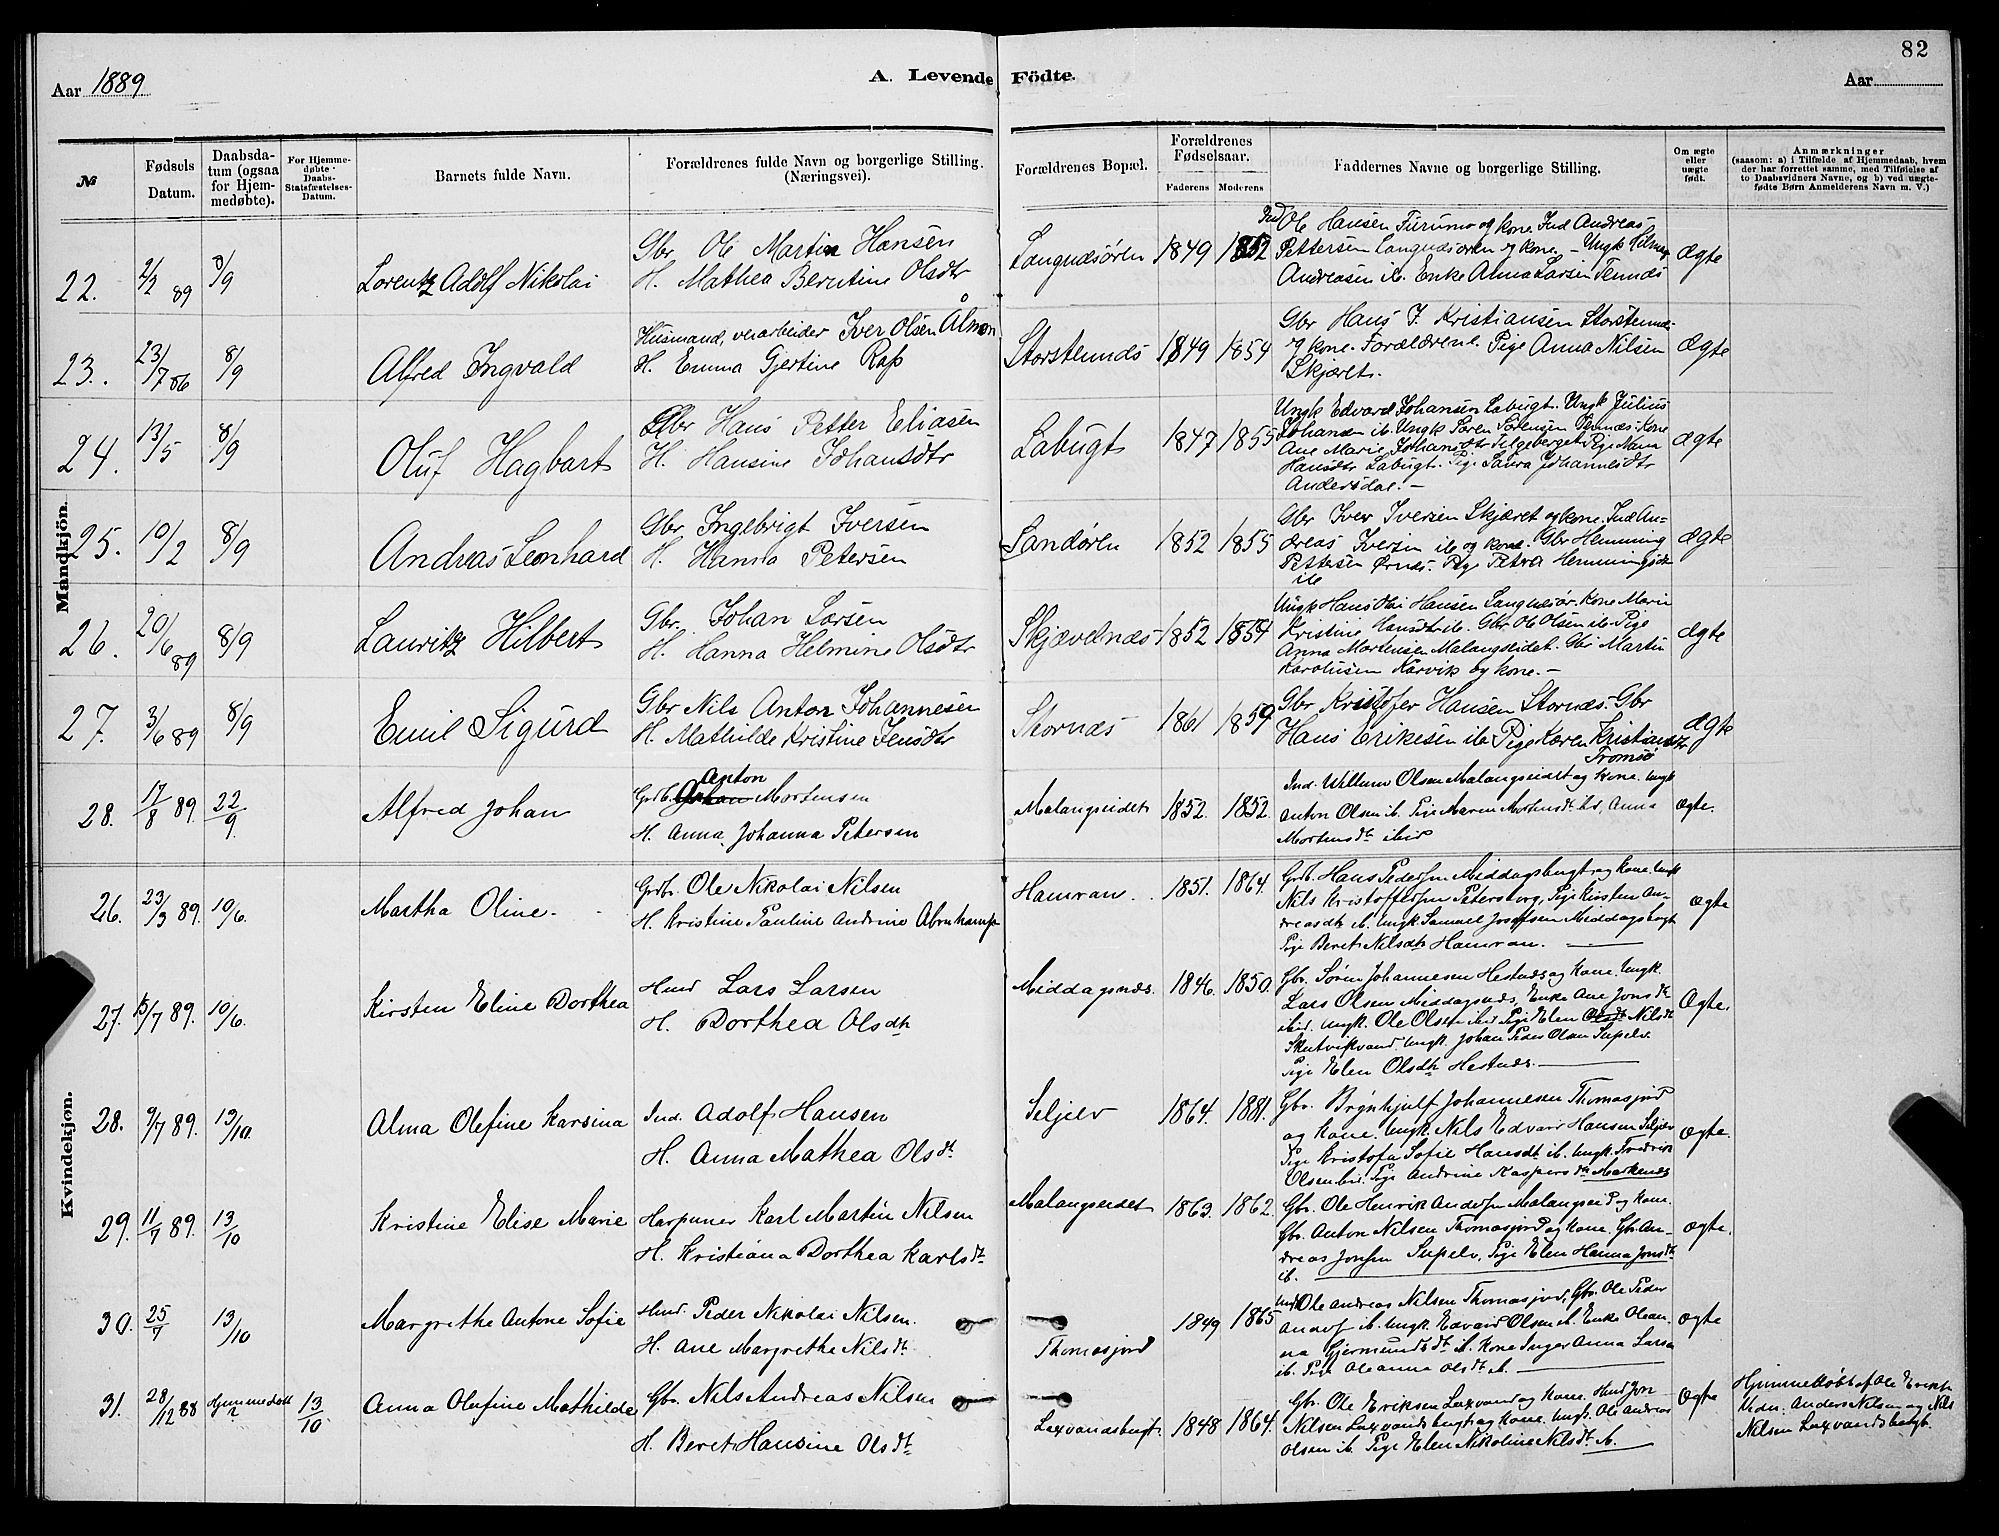 82
Aar 1889
A. Levende Födte.
Aar
№
Fødsels Datum.
Daabsda-
tum (ogsaa
for Hjem-
medøbte).
For Hjemme-
døbte
Daabs-
Statsfæstelses-
Datum.
Barnets fulde Navn.
Forældrenes fulde Navn og borgerlige Stilling.
(Næringsvei).
Forældrenes Bopæl.
Forældrenes
Fødselsaar.
Faderens
Moderens
Faddernes Navne og borgerlige Stilling.
Om ægte
eller
uægte
født.
Anmærkninger
(saasom: a) i Tilfælde af Hjemmedaab, hvem
der har forrettet samme, med Tilføielse af
to Daabsvidners Navne, og b) ved uægte-
fødte Børn Anmelderens Navn m. V.)
Mandkjön.
22. 2/2 89 8/9 Lorentz Adolf Nikolai
Gbr Ole Martin Hansen
H. Mathea Berntine Olsdtr
Langnæsören 1849 1852
Ole Hansen Furumo og kone Ind Andreas
Pettersen Langnæsören og kone. – Ungk Hilmar
Andreasen ib. Enke Anna Larsen Tennæs
ægte
23. 23/7 86 8/9 Alfred Ingvald
Husmand, verarbeider Iver Olsen Ålmen
H. Emma Gjertine Rap
Storstennæs 1849 1854
Gbr Hans J. Kristiansen Storstennæs
og kone. Forældrene. Pige Anna Nilsen
Skjæret.
Ægte
24. 13/5 8/9 Oluf Hagbart
Gbr Hans Petter Eliasen
H. Hansine Johansdtr
Labugt 1847 1855
Ungk Edvard Johansen Labugt. Ungk Julius
Johansen ib. Ungk Sören Sörensen Tennæs. Kone
Ane Marie Johansdtr Pige Mana
Hansdtr Labugt. Pige Laura Johannesdtr
Andersdal. –
ægte
25. 10/2 8/9 Andreas Leonhard
Gbr Ingebrigt Iversen
H. Hanna Petersen
Sandören 1852 1855
Gbr Iver Iversen Skjæret og kone. Ind An-
dreas Iversen ib og kone. Gbr Hemming
Pettersen Örnæs. Pige Petra Hemmingsdtr
ib
ægte
26. 20/6 89 8/9 Lauritz Hilbert
Gbr. Johan Larsen
H. Hanna Helmine Olsdtr
Skjævelnæs 1852 1854
Ungk Hans Olai Hansen Langnæsör. Kone Marie
Kristine Hansdtr ib. Gbr Ole Olsen ib. Pige
Anna Mortensen Malangseidet. Gbr Martin
Karolusen Kårvik og kone. –
ægte
27. 3/6 89 8/9 Emil Sigurd
Gbr Nils Anton Johannesen
H. Mathilde Kristine Jensdtr
Stornæs 1861 1859
Gbr Kristofer Hansen Stornæs. Gbr
Hans Eriksen ib Pige Karen Kristiansdtr
Tromsö
ægte
28. 17/8 89. 22/9. Alfred Johan
Anton
Grdb. Johan Mortensen
H. Anna Johanna Petersen
Malangseidet 1852. 1852.
Ind. Willum Olsen Malangseidet og kone. Ungk
Anton Olsen ib. Pige Maren Mortensdt. ibd, Anna
Mortensdt ibid
ægte.
Kvindekjön.
26. 23/3 89. 10/6. Martha Oline.
Grdb. Ole Nikolai Nilsen
H. Kristine Pauline Andrine Abrahams
Hamran. 1851. 1864.
Grdb. Hans Pedersen Middagsbugt og kone. Ungk
Nils Kristoffersen Petersborg, Pige Kirsten An-
dreasdt. ib. Ungk Samuel Josefsen Middagsbugt
Pige Beret Nilsdt. Hamran.
ægte
27. 15/7 89. 10/6. Kirsten Eline Dorthea
Hmd Lars Larsen
H. Dorthea Olsdtr
Middagsnæs. 1846. 1850.
Gbr. Sören Johannesen Hestnæs og kone. Ungk.
Lars Olsen Middagsnæs, Enke Ane Jonsdt
ibid. Ungk. Ole Olsen ibid Pige Elen Olsdt Nilsdt
Skutvikvand. Ungk. Johan Peder Olsen Supelv.
Pige Elen Olsdtr Hestnæs.
Ægte.
28. 9/7 89. 13/10. Alma Olefine Karsina
Ind. Adolf Hansen
H. Anna Mathea Olsdt
Seljelv 1864. 1881.
Gbr. Brynhjulf Johannesen Thomasjord
og kone. Ungk. Nils Edvard Hansen Seljelv
Pige Kristofa Sofie Hansdt ib. Ungk. Fredrik
Olsen ibid. Pige Andrine Kaspersdtr Markenæs
ægte.
29. 11/7 89. 13/10 Kristine Elise Marie
Harpuner Karl Martin Nilsen
H. Kristiana Dorthea Karlsdt
Malangseidet 1863. 1862.
Gbr. Ole Henrik Andersen Malangseid og kone.
Gbr. Anton Nilsen Thomasjord og kone. Gbr. An-
dreas Jonsen Supelv, Pige Elen Hanna Jonsdt
ib.
ægte.
30. 25/7 13/10 Margrethe Antone Sofie
Hmd. Peder Nikolai Nilsen.
H. Ane Margrethe Nilsdt
Thomasjord 1849 1865
Ungk Ole Andreas Nilsen Thomasjord, Gbr. Ole Peder
Anders ib. Ungk. Edvard Olsen ib. Enke Olean-
na Gjermundsdt ib. Kone Inger Anna Larsen
ib. Pige Oleanna Olsdt ib.
ægte
31. 28/12 88 Hjemmedöbt 13/10 Anna Olefine Mathilde
Gbr. Nils Andreas Nilsen
H. Beret Hansine Olsdt
Laxvandsbugt. 1848 1864.
Gbr. Ole Eriksen Laxvand og kone. Hmd Jon
Nilsen Laxvandsbugt og kone. Ungk. Ole Andreas
Olsen ib. Pige Elen Nikoline Nilsdt ib.
Ægte
Hjemmedöbt af Ole Eriksen
Vidn. Anders Nilsen og Nils
Nilsen Laxvandsbugt.